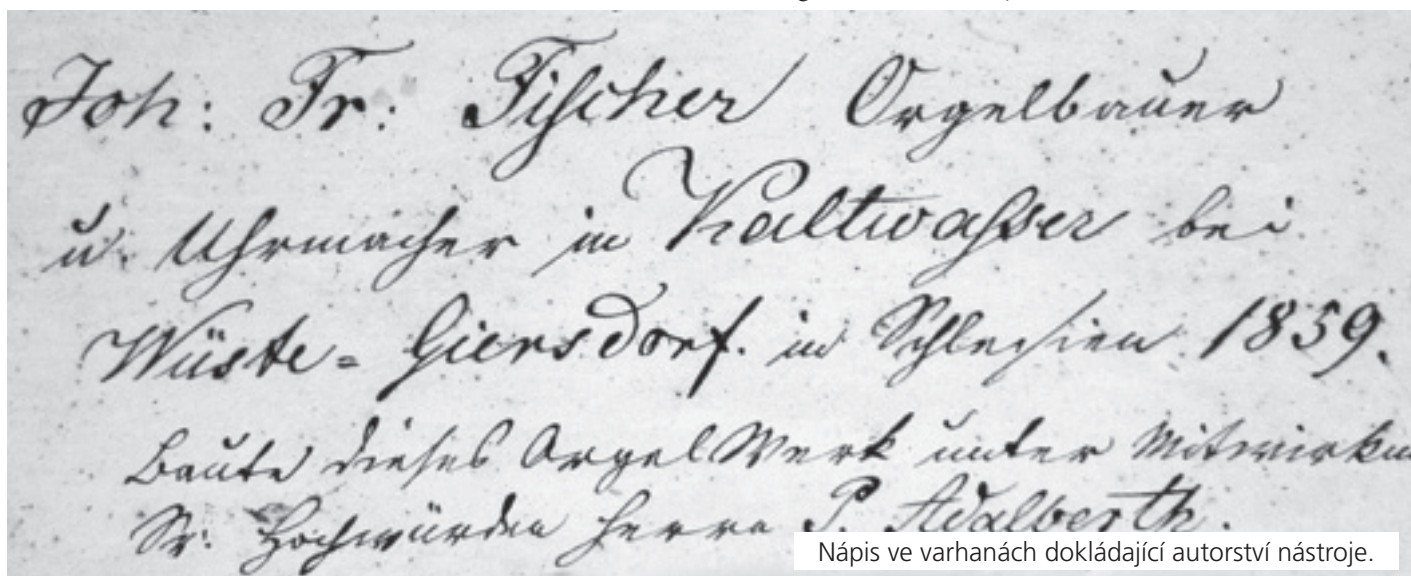 Joh: Fr: Fischer Orgelbauer
u. Uhrmacher in Kaltwasser bei
Wüste-Giersdorf. in Schlesien 1859.
Baute dieses OrgelWerk unter Mitwirkun
Sr. Hochwürden Herrn P. Adalberth.
Nápis ve varhanách dokládající autorství nástroje.